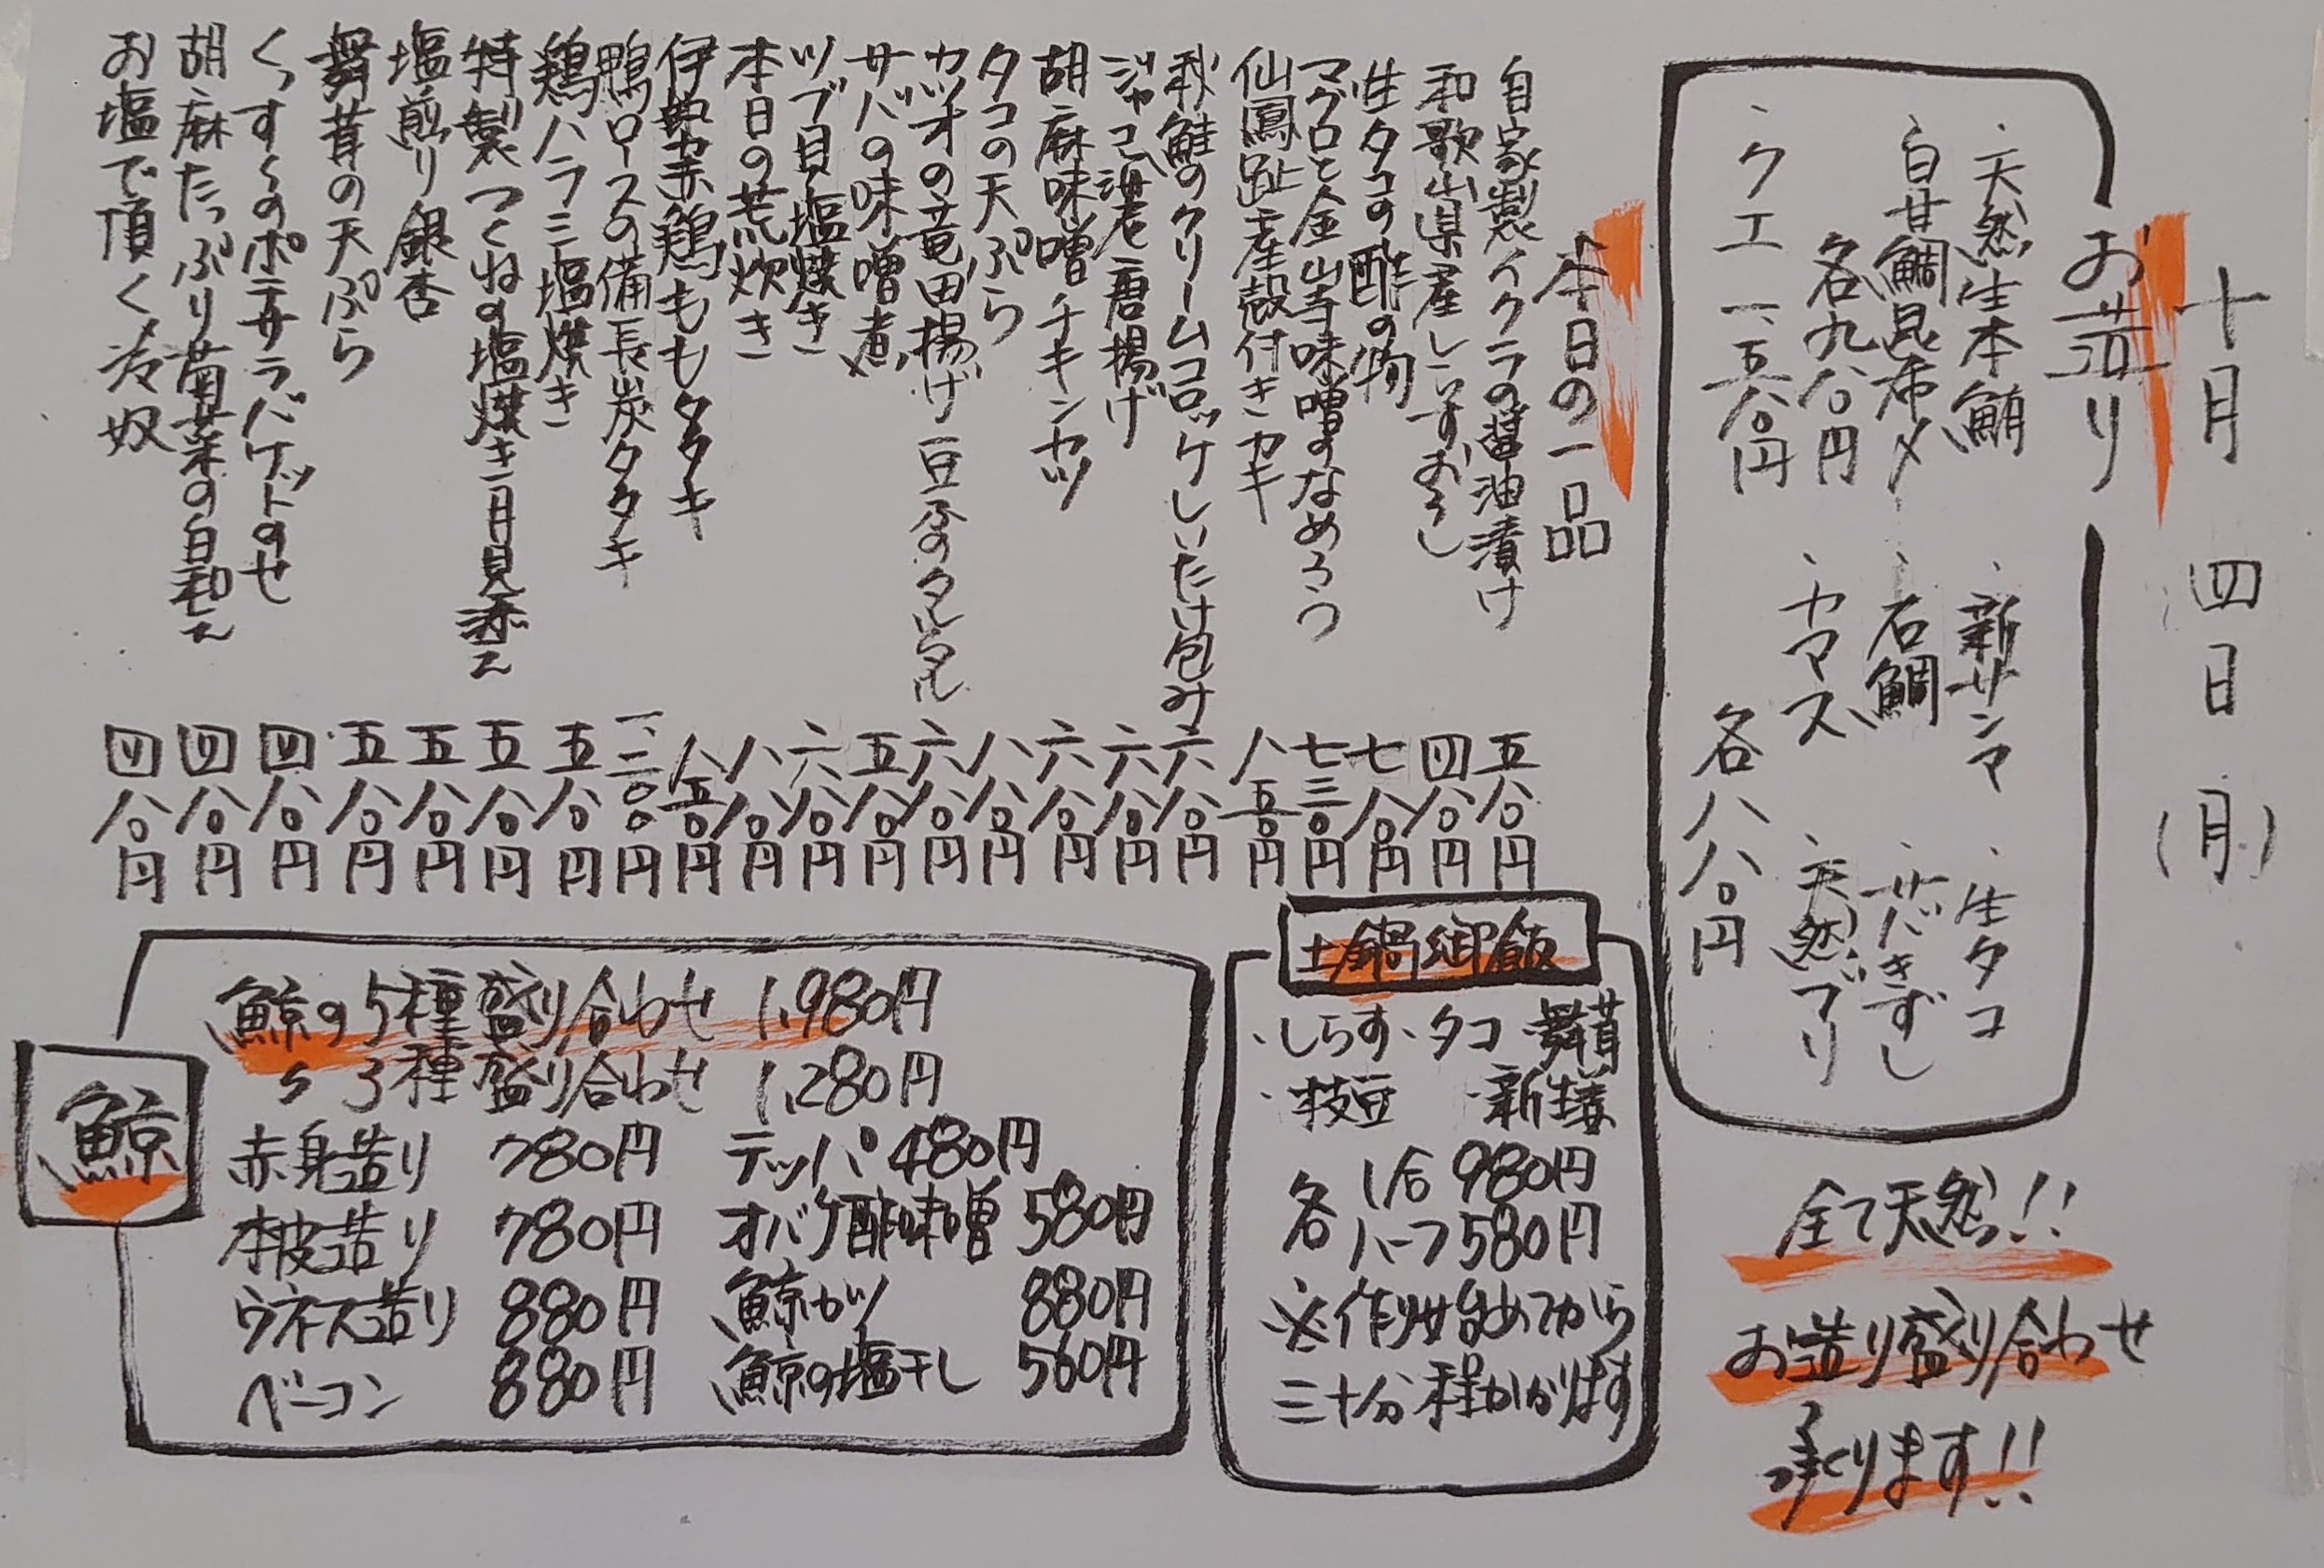 十月 四日 (月)
お造り
・天然生本鮪 ・新サンマ ・生タコ
・白甘鯛昆布〆 ・石鯛 ・サバきずし
各九八〇円 ・カマス ・天然ブリ
・クエ 一、五八〇円 各八八〇円
全て天然!!
お造り盛り合わせ
承ります!!
本日の一品
自家製イクラの醤油漬け 五八〇円
和歌山県産しらすおろし 四八〇円
生タコの酢の物 七八〇円
マグロと金山寺味噌のなめろう 七三〇円
仙鳳趾産殻付きカキ 八五〇円
秋鮭のクリームコロッケしいたけ包み 六八〇円
ジャコ 唐揚げ 六八〇円
胡麻味噌チキンカツ 六八〇円
タコの天ぷら 八八〇円
カツオの竜田揚げ 豆冬のタルタル 六八〇円
サバの味噌煮 五八〇円
ツブ貝塩焼き 六八〇円
本日の荒炊き 八八〇円
伊勢赤鶏ももタタキ 八五〇円
鴨ロースの備長炭タタキ 一、二〇〇円
鶏ハラミ塩焼き 五八〇円
特製つくねの塩焼き 月見添え 五八〇円
塩煎り銀杏 五八〇円
舞茸の天ぷら 五八〇円
くっすくのポテサラバケットのせ 四八〇円
胡麻たっぷり菊菜の白和え 四八〇円
お塩で頂く冷奴 四八〇円
土鍋御飯
・しらす ・タコ ・舞茸
・枝豆 ・新生姜
各 1合 980円
各 ハーフ 580円
※作り始めてから
三十分程かかります
鯨
鯨の5種盛り合わせ 1,980円
〃 3種盛り合わせ 1,280円
赤身造り 780円 テッパ 480円
本皮造り 780円 オバケ酢味噌 580円
ウネス造り 880円 鯨カツ 880円
ベーコン 880円 鯨の塩干し 560円